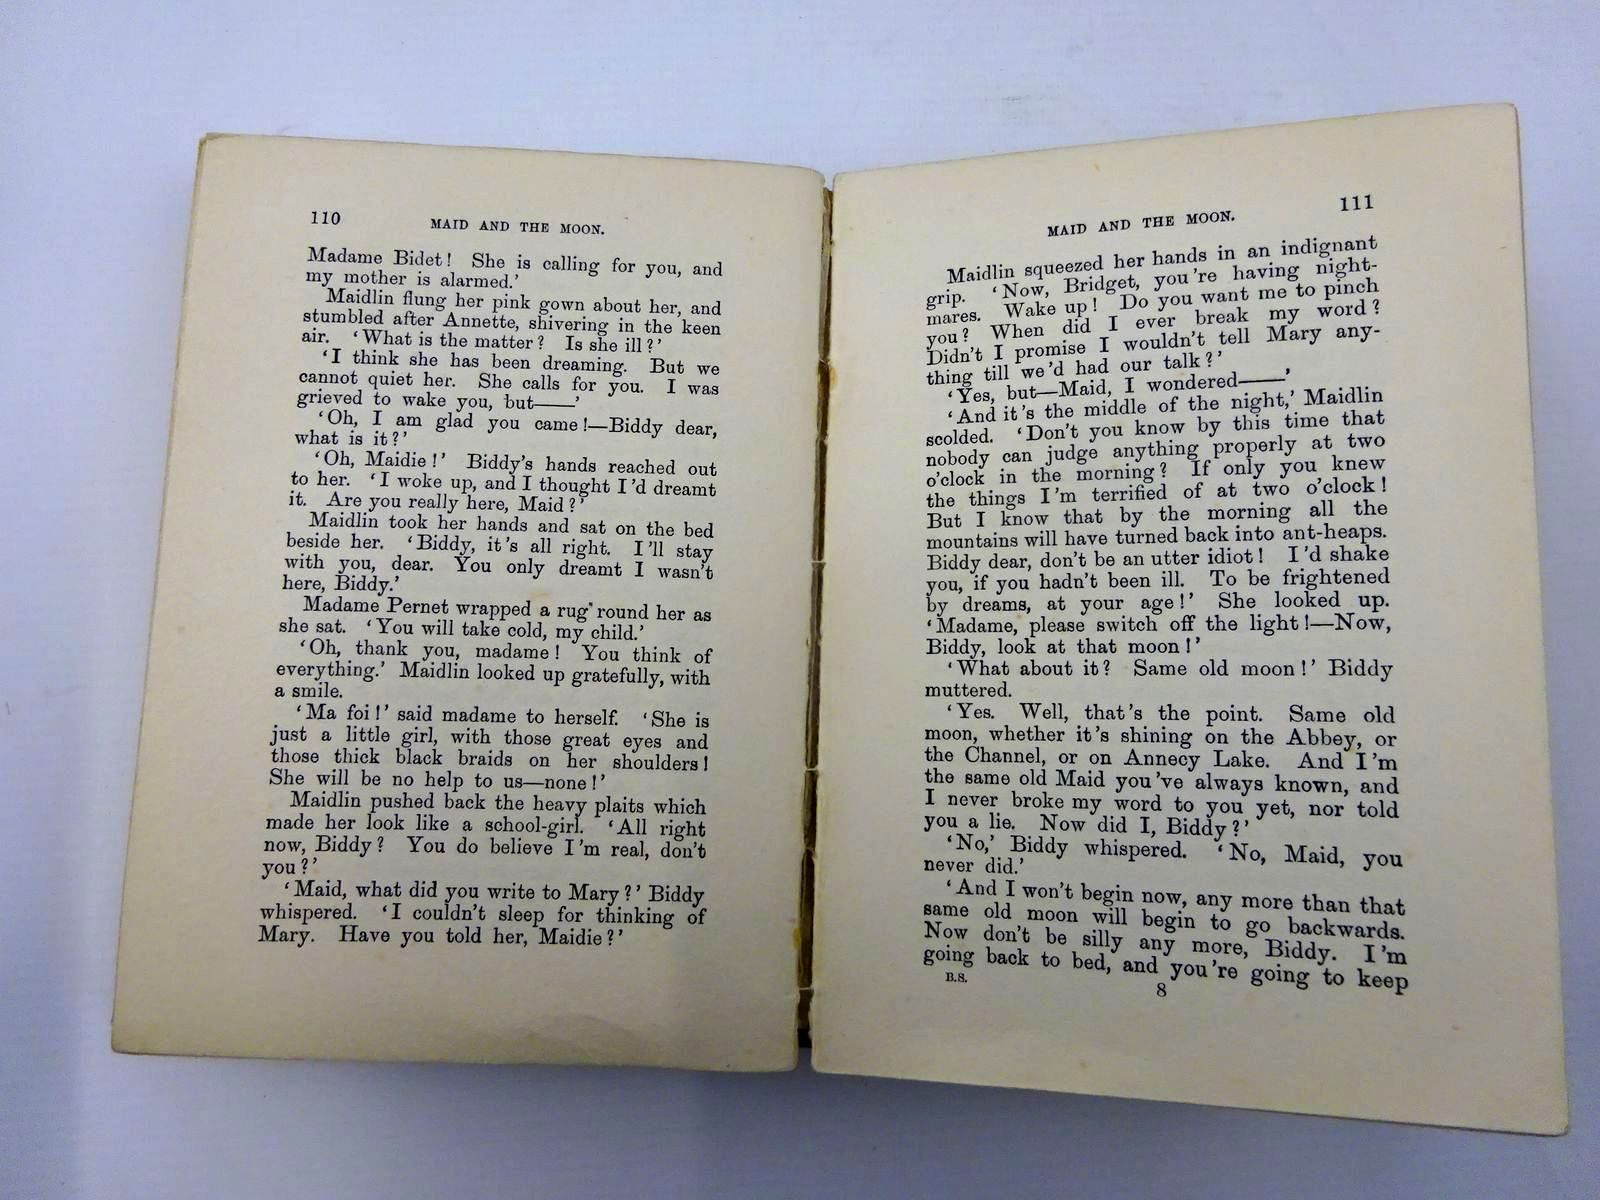 110
MAID AND THE MOON.
Madame Bidet! She is calling for you, and
my mother is alarmed.'
Maidlin flung her pink gown about her, and
stumbled after Annette, shivering in the keen
air. 'What is the matter? Is she ill?'
'I think she has been dreaming. But we
cannot quiet her. She calls for you. I was
grieved to wake you, but——'
'Oh, I am glad you came!—Biddy dear,
what is it?'
'Oh, Maidie!' Biddy's hands reached out
to her. 'I woke up, and I thought I'd dreamt
it. Are you really here, Maid?'
Maidlin took her hands and sat on the bed
beside her. 'Biddy, it's all right. I'll stay
with you, dear. You only dreamt I wasn't
here, Biddy.'
Madame Pernet wrapped a rug round her as
she sat. 'You will take cold, my child.'
'Oh, thank you, madame! You think of
everything.' Maidlin looked up gratefully, with
a smile.
'Ma foi!' said madame to herself. 'She is
just a little girl, with those great eyes and
those thick black braids on her shoulders!
She will be no help to us—none!'
Maidlin pushed back the heavy plaits which
made her look like a school-girl. 'All right
now, Biddy? You do believe I'm real, don't
you?'
'Maid, what did you write to Mary?' Biddy
whispered. 'I couldn't sleep for thinking of
Mary. Have you told her, Maidie?'
MAID AND THE MOON.
111
Maidlin squeezed her hands in an indignant
grip. 'Now, Bridget, you're having night-
mares. Wake up! Do you want me to pinch
you? When did I ever break my word?
Didn't I promise I wouldn't tell Mary any-
thing till we'd had our talk?'
'Yes, but—Maid, I wondered——'
'And it's the middle of the night,' Maidlin
scolded. 'Don't you know by this time that
nobody can judge anything properly at two
o'clock in the morning? If only you knew
the things I'm terrified of at two o'clock!
But I know that by the morning all the
mountains will have turned back into ant-heaps.
Biddy dear, don't be an utter idiot! I'd shake
you, if you hadn't been ill. To be frightened
by dreams, at your age!' She looked up.
'Madame, please switch off the light!—Now,
Biddy, look at that moon!'
'What about it? Same old moon!' Biddy
muttered.
'Yes. Well, that's the point. Same old
moon, whether it's shining on the Abbey, or
the Channel, or on Annecy Lake. And I'm
the same old Maid you've always known, and
I never broke my word to you yet, nor told
you a lie. Now did I, Biddy?'
'No,' Biddy whispered. 'No, Maid, you
never did.'
'And I won't begin now, any more than that
same old moon will begin to go backwards.
Now don't be silly any more, Biddy. I'm
going back to bed, and you're going to keep
B.S.
8